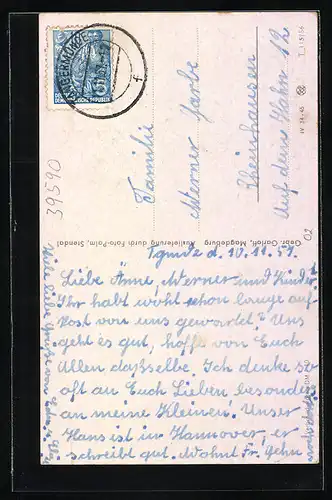 TANGERMÜNDE
f
DEMOKRATISCHE REPUBLIK
5
T 1 151/56
IV-14-45
39590
Familie
Werner Jarbe
Rheinhausen
Auf dem Hahn 12
02
Gebr. Garloff, Magdeburg Auslieferung durch Foto-Palm, Stendal
Tgmde d. 10.11.57.
Liebe Änne, Werner und Kinder!
Ihr habt wohl schon lange auf
Post von uns gewartet? Uns
geht es gut, hoffe von Euch
Allen daßselbe. Ich denke so
oft an Euch Lieben besonders
an meine Kleinen! Unser
Hans ist in Hannover, er
schreibt gut. Wohnt Fr. Gehn
Viele liebe Grüße